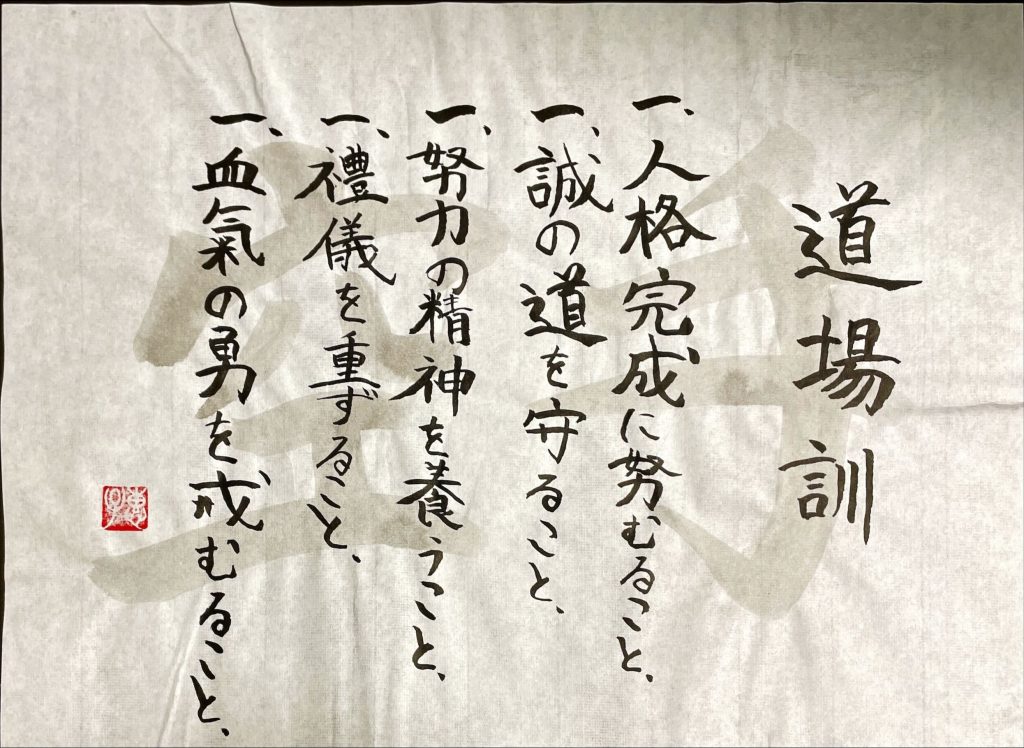 道場訓
一、人格完成に努むること、
一、誠の道を守ること、
一、努力の精神を養うこと、
一、禮儀を重ずること、
一、血氣の勇を戒むること、
空手